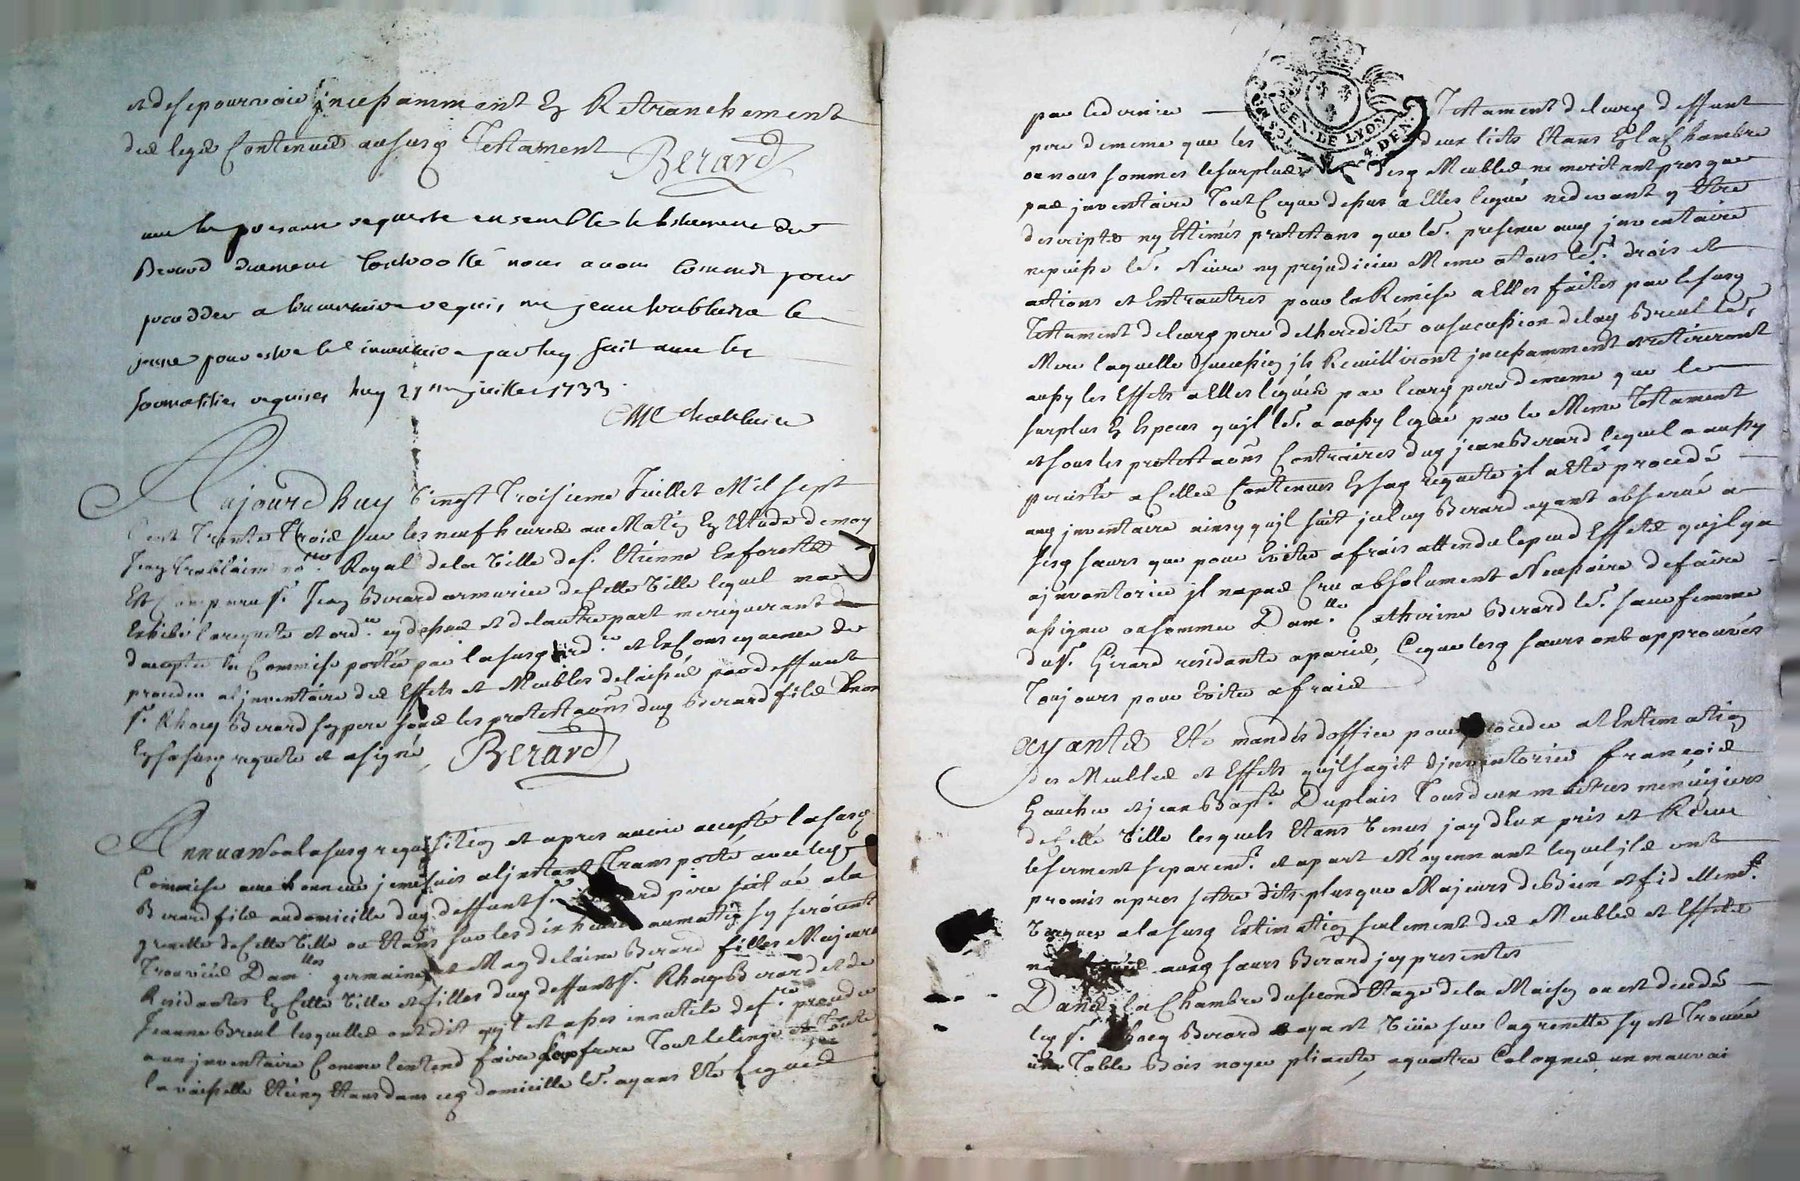 et de se pourvoir incessamment En Retranchement
des legs Contenus au susd Testament Berard
veu la presente requeste ensemble
Berard nous avons Commis pour
proceder a l'inventaire requis me jean
jeune pour estre led inventaire par luy fait avec les
formalités requises huy 21 juillet 1733
Aujourd huy vingt Troisieme Juillet Mil sept
Cent Trente Trois sur les neuf heures du Matin En l'Etude de moy
Royal de la Ville de St Etienne En forests
Est Comparu Sr Jean Berard armurier de cette Ville lequel ma
Exhibé la requete et ord.ce cy dessus et de l'autre part me requerant
d'accepter la Commise portée par la susd ord.ce et En Consequence de
proceder a l'inventaire des Effets et Meubles delaissés par deffunt
Sr Rhoch Berard son pere sous les protestaons dud Berard fils
En sa susd requete et a signé Berard
A la susd requisition et apres avoir accepté la susd
Commise avec honneur je me suis a l'jnstant Transporté avec led
Berard fils au domicille dud deffunt Sr Berard pere sçitué a la
grenette de Cette Ville ou Etans sur les dix heures du matin sy seroient
Trouvées Dam.lles germaine et Magdelaine Berard filles Majeures
Residantes En Cette Ville et filles dud deffunt Sr Rhoch Berard et de
Jeanne Breul lesquelles ont dit quil est asses innutile de proceder
a un jnventaire Comme l'entend faire frere Tout le linge et Toute
la vaisselle Etaing Etans dans ced domicille ayans Eté legués
par le dernier Testament de leurd deffunt
GEN. DE LYON 4. DEN.
pere de meme que les deux licts Etans En la Chambre
ou nous sommes le surplus desd Meubles ne meritant presque
pas jnventaire Tout ce que dessus a Elles legué ne devant y Etre
descripts ny Estimés protestans que le present jnventaire
ne puisse Nuire ny prejudicier Meme a tous droits et
actions et Entrautres pour la Remise a Elles faites par le susd
Testament de leurd pere de lheredité ou succession de lad Breul
Mere laquelle succession jls Recuilliront jncessamment et retireront
aussy les Effets a Elles legués par leurd pere de meme que le
surplus En Especes quil a aussy legué par le Meme Testament
et sous les protestaons Contraires dud jean Berard lequel a aussy
persisté a Celles Contenues En sad requete jl a Eté procedé
aud jnventaire ainsy quil suit jceluy Berard ayant observé a
sesd sœurs que pour Eviter a frais attendu le peu d Effets quil y a
a jnventorier jl na pas Cru absolument Necessaire de faire
assigner ou sommer Dam.lle Catherine Berard sœur femme
du Sr Girard residante a paris, Ce que lesd sœurs ont approuvés
Toujours pour Eviter a frais
Ayants Eté mandés d'office pour proceder a l'Estimation
des Meubles et Effets quil sagit d jnventorier François
Gaucher et jean Bap.te Duplais Tous deux maitres menuisiers
de Cette Ville lesquels Etans Venus jay d Eux pris et Receu
le serment separem.t et apart Moyennant lequel jls ont
promis apres setre dits plus que Majeurs de Bien et fidellem.t
Vaquer a la susd Estimation seulement des Meubles et Effets
auxd sœurs Berard jcy presentes
Dans la Chambre du second Etage de la Maison ou est decedé
led Sr Rhoch Berard ayant Veüe sur la grenette sy est Trouvé
une Table Bois noyer pliante, a quatre Colognes un mauvai